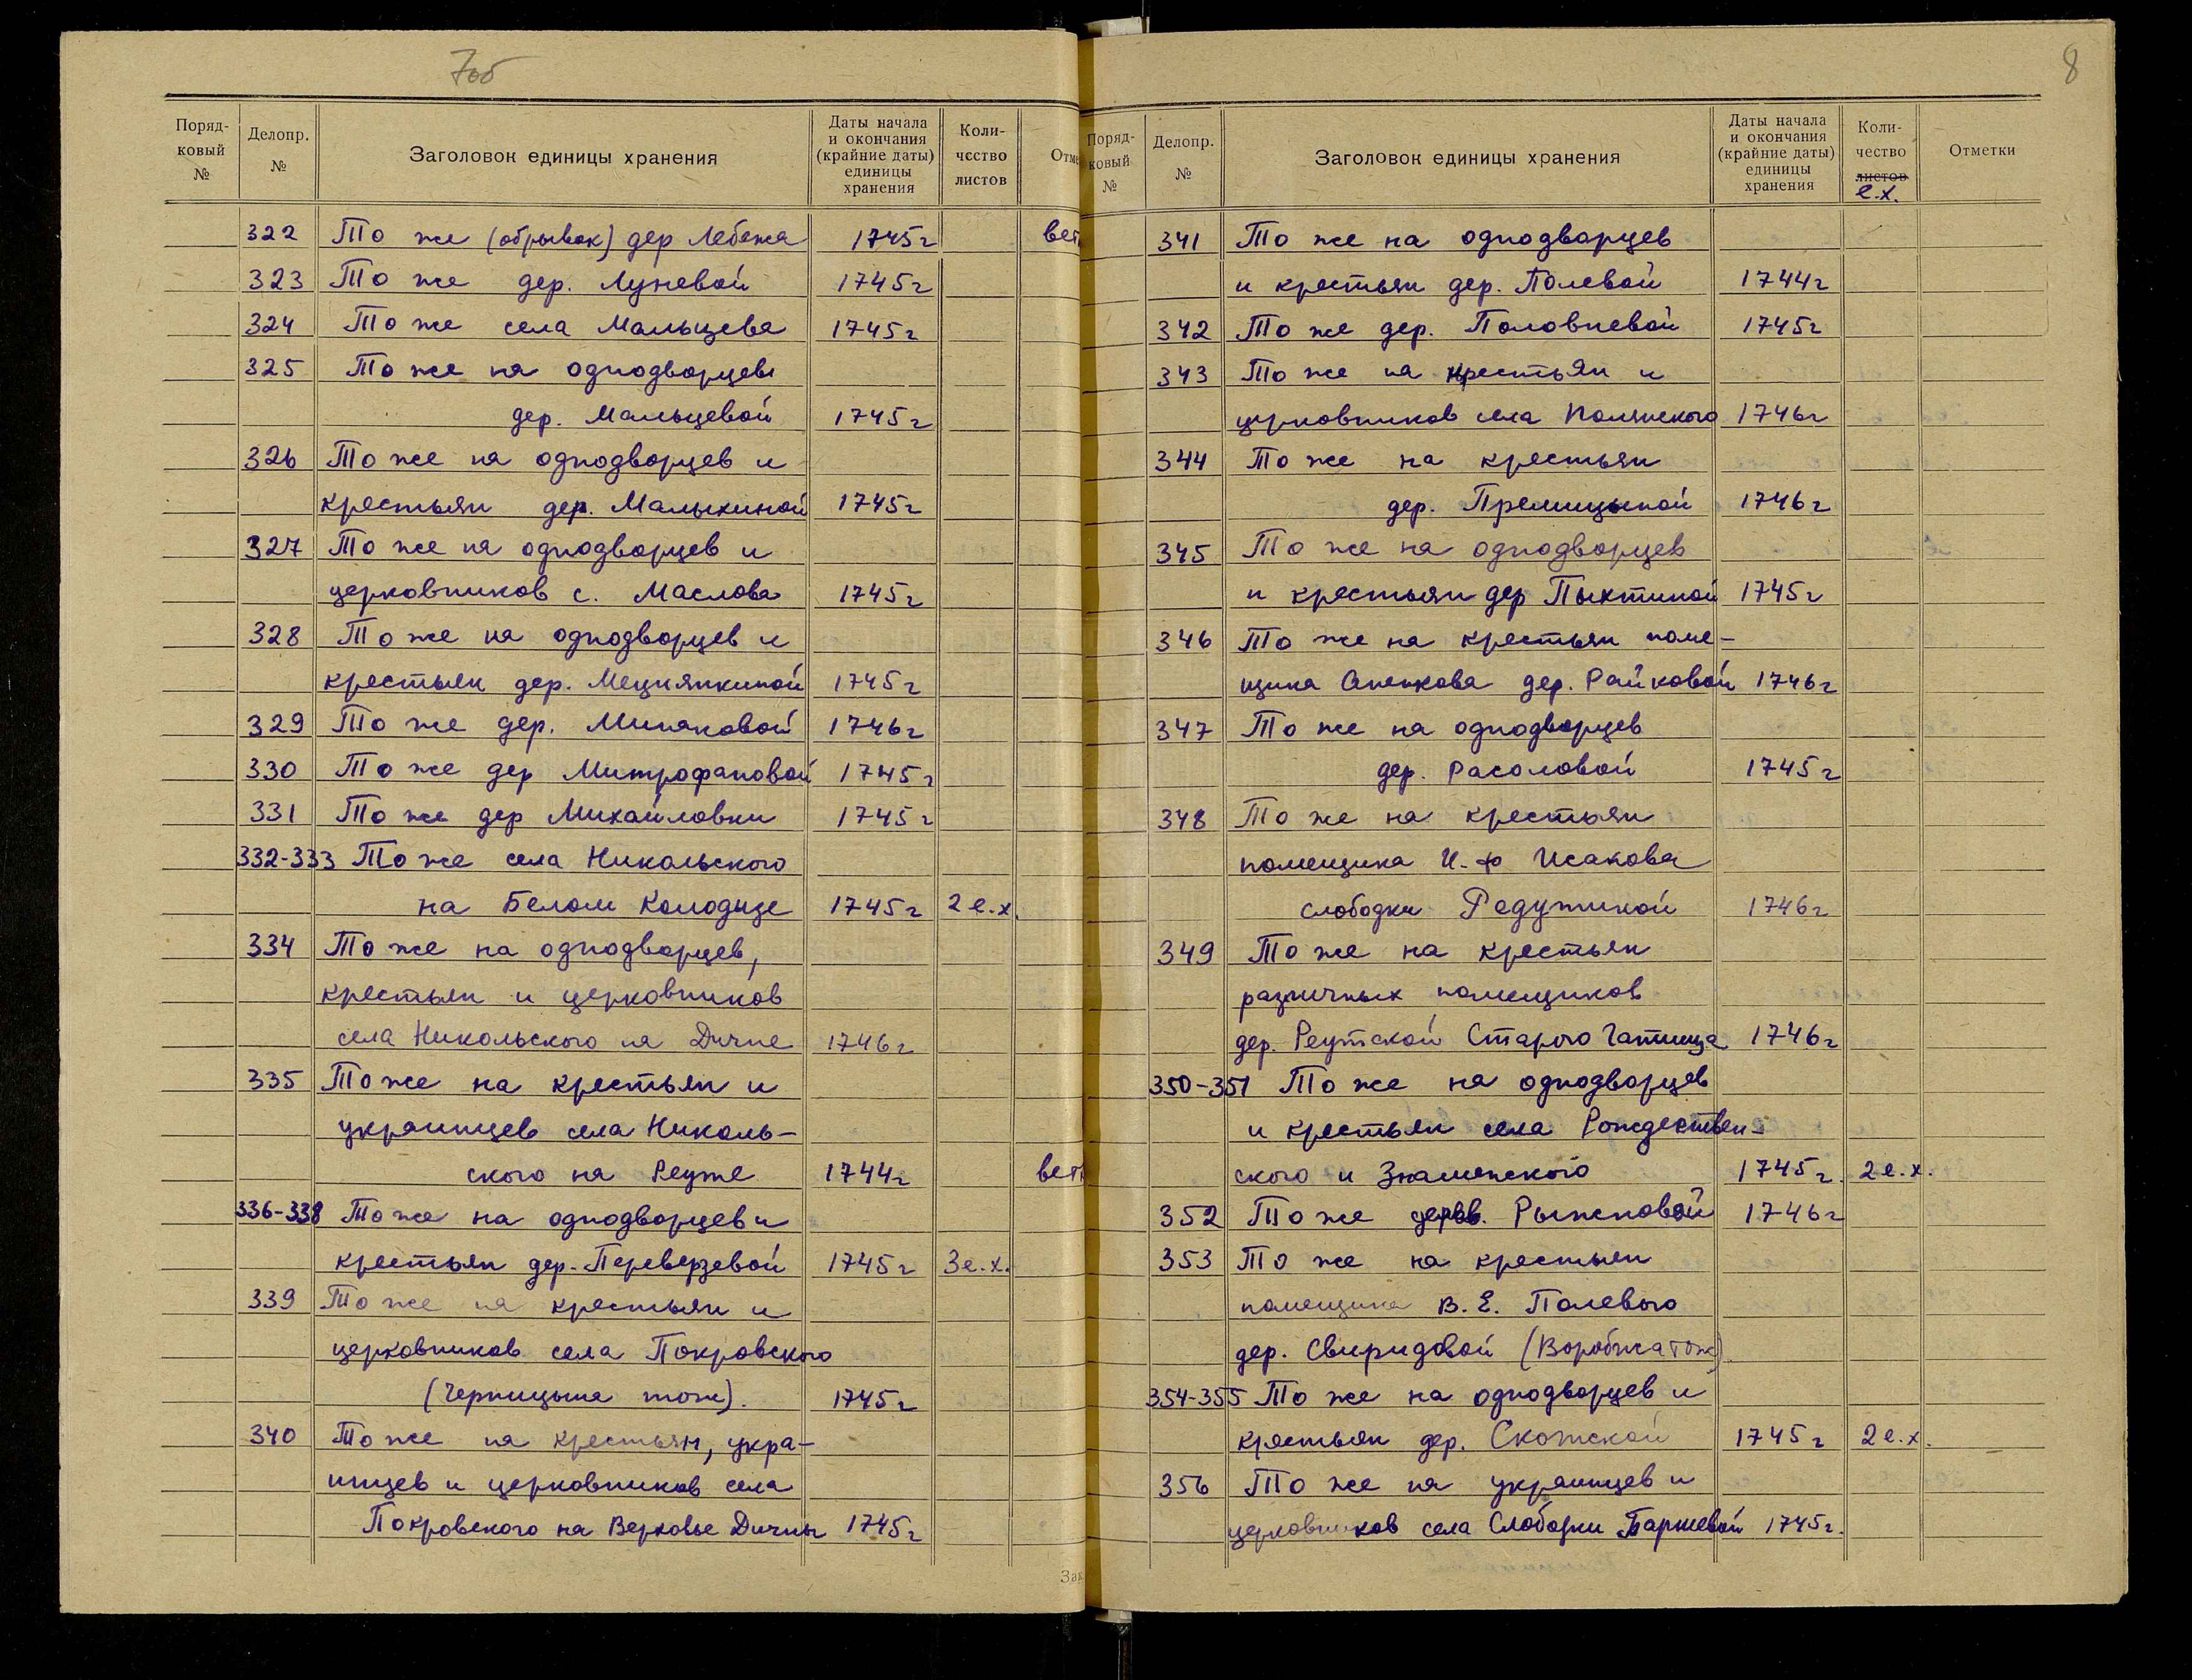 7об
Поряд-
ковый
№
Делопр.
№
Заголовок единицы хранения
Даты начала
и окончания
(крайние даты)
единицы
хранения
Коли-
чество
листов
Отме
322 То же (обрывок) дер Лебежа 1745г вет
323 То же дер. Луневой 1745г
324 То же села Мальцева 1745г
325 То же на однодворцев
дер. Мальцевой 1745г
326 То же на однодворцев и
крестьян дер. Малыхиной 1745г
327 То же на однодворцев и
церковников с. Маслова 1745г
328 То же на однодворцев и
крестьян дер. Мецнянкиной 1745г
329 То же дер. Миляковой 1746г
330 То же дер Митрофановой 1745г
331 То же дер Михайловки 1745г
332-333 То же села Никольского
на Белом Колодце 1745г 2 е.х.
334 То же на однодворцев,
крестьян и церковников
села Никольского на Дичне 1746г
335 То же на крестьян и
украинцев села Николь-
ского на Реуте 1744г вет
336-338 То же на однодворцев и
крестьян дер. Переверзевой 1745г 3 е.х.
339 То же на крестьян и
церковников села Покровского
(Черницына тож). 1745г
340 То же на крестьян, укра-
инцев и церковников села
Покровского на Верховье Дичны 1745г
Зак
8
Поряд-
ковый
№
Делопр.
№
Заголовок единицы хранения
Даты начала
и окончания
(крайние даты)
единицы
хранения
Коли-
чество
листов
е.х.
Отметки
341 То же на однодворцев
и крестьян дер. Полевой 1744г
342 То же дер. Половневой 1745г
343 То же на крестьян и
церковников села Полянского 1746г
344 То же на крестьян
дер. Прелицыной 1746г
345 То же на однодворцев
и крестьян дер Пыхтиной 1745г
346 То же на крестьян поме-
щика Аненкова дер. Райковой 1746г
347 То же на однодворцев
дер. Расоловой 1745г
348 То же на крестьян
помещика И. Ф Исакова
слободки Редутиной 1746г
349 То же на крестьян
различных помещиков
дер. Реутской Старого Гатища 1746г
350-351 То же на однодворцев
и крестьян села Рождествен-
ского и Знаменского 1745г. 2 е.х.
352 То же дер. Рыжковой 1746г
353 То же на крестьян
помещика В. Е. Полевого
дер. Свиридовой (Воробжа тож)
354-355 То же на однодворцев и
крестьян дер. Скотской 1745г 2 е.х.
356 То же на украинцев и
церковников села Слободки 1745г.